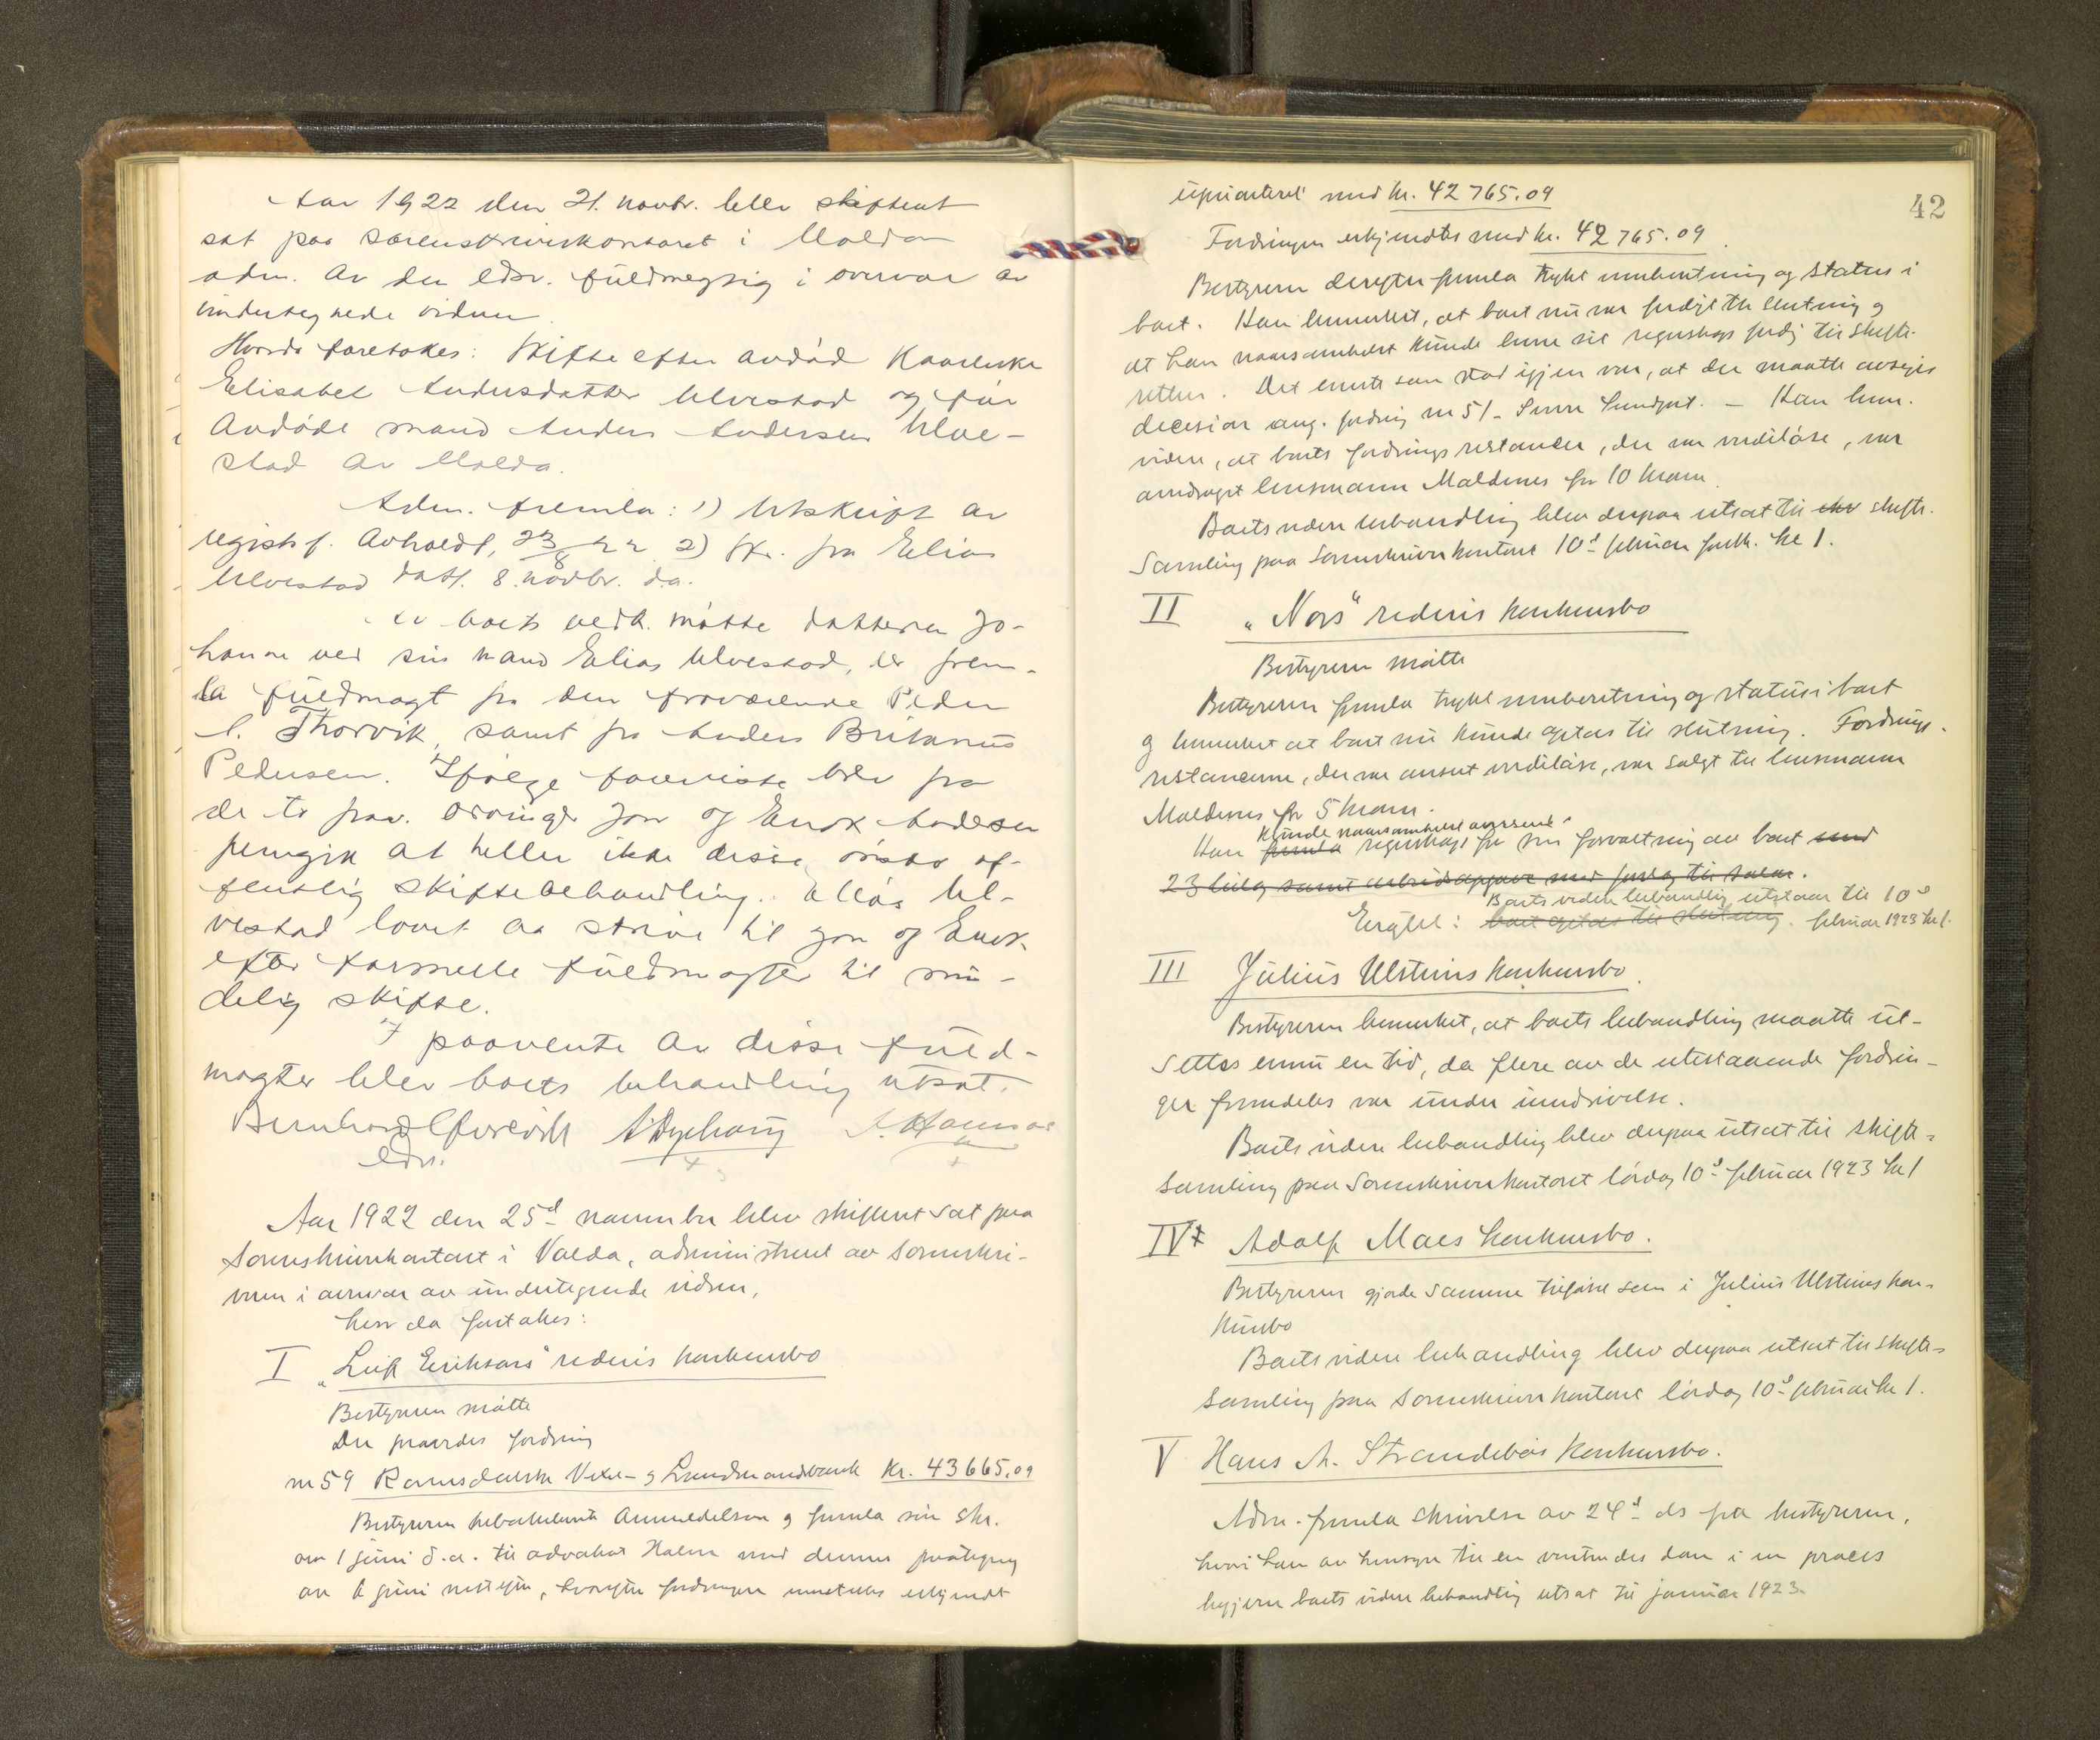 Aar 1922 den 21. novbr. blev skifteret
sat paa sorenskriverkontoret i Volda
adm. av den edsv. fuldmegtig i overvær av
undertegnede vidner.
Hvorda foretokes: Skifte efter avdød Kaarinke
Elisabet Andersdatter Ulvestad og før
avdøde mand Anders Andersen Ulve-
stad av Volda.
Adm. fremla: 1) Utskrift av
registr.f. avholdt, 23/8 22 2) Skr. fra Elias
Ulvestad dat. 8. novbr. d.a.
Av boets vedk. møtte datteren Jo-
hanne ved sin mand Elias Ulvestad, der frem-
la fuldmagt fra den fraværende Peder
P. Thorvik, samt fra Anders Britanus
Pedersen. Ifølge foreviste brev fra
de to frav. arvinger Jon og Enok Andersen
fremgik at heller ikke disse ønsker of-
fentlig skiftebehandling. Elias Ul-
vestad lovet aa skrive til Jon og Enok
efter formelle fuldmagter til min-
delig skifte.
I paavente av disse fuld-
magter blev boets behandling utsat.
Bernhard
edsv.
Aar 1922 den 25d november blev skifteret sat paa
Sorenskriverkontoret i Volda, administreret av Sorenskri-
veren i overvær av undertegnede vidner,
hvor da foretokes:
I „Leif Eriksons" rederis konkursbo
Bestyreren møtte
Der prøvedes fordring
nr 59 Romsdalske Vexel- og Landmandsbank Kr. 43665,09
Bestyreren tilbakeleverte anmeldelsen og fremla sin skr.
av 1 juni d.a. til advokat Holm med dennes paategning
av 6 juni næstefter, hvorefter fordringen innstilles erkjendt
42
uprioritert med kr. 42 765.09
Fordringen erkjendtes med kr. 42 765.09.
Bestyreren derefter fremla trykt innberetning og status i
boet. Han bemerket, at boet nu var færdigt til slutning og
at han naarsomhelst kunde levere sit regnskap færdig til skifte-
retten. Det eneste som stod igjen var, at der maatte avsiges
decision ang. fordring nr 51 - . - Han bem.
videre, at boets fordringsrestancer, der var verdiløse, var
avdraget lensmann Maldenes for 10 kroner.
Boets videre behandling blev derpaa utsat til skifte-
samling paa Sorenskriverkontoret 10d februar førstk. kl 1.
II „Nors" rederis konkursbo
Bestyreren møtte
Bestyreren fremla trykt innberetning og status i boet
og bemerket at boet nu kunde optas til slutning. Fordrings-
restancerne, der var ansett verdiløse, var solgt til lensmann
Maldenes for 5 kroner.
kunde naarsomhelst
Han fremla regnskap for sin forvaltning av boet med
23 bilag samt arbeidsopgave med forslag til salær.
Boets videre behandling utstaar til 10d
Eragtet: boet optas til slutning. februar 1923 kl 1.
III Julius Ulsteins konkursbo.
Bestyreren bemerket, at boets behandling maatte ut-
settes ennu en tid, da flere av de utestaaende fordrin-
ger fremdeles var under inndrivelse.
Boets videre behandling blev derpaa utsat til skifte-
samling paa Sorenskriverkontoret lørdag 10d februar 1923 kl 1
IV Adolf Moes konkursbo.
Bestyreren gjorde samme tilførsel som i Julius Ulsteins kon-
kursbo
Boets videre behandling blev derpaa utsat til skifte-
samling paa Sorenskriverkontoret lørdag 10d februar kl 1.
V Hans A. Strandebøs konkursbo.
Adm. fremla skrivelse av 24d ds fra bestyreren,
hvori han av hensyn til en ventendes dom i en proces
begjærer boets videre behandling utsat til januar 1923